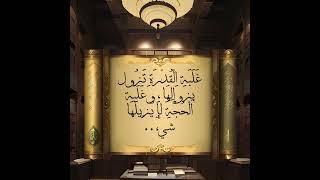 غَلَبَةِ الْقُدْرَةِ تَزُول
بِزوالها، وغَلَبة
الحجة لا يزيلها
شيء..